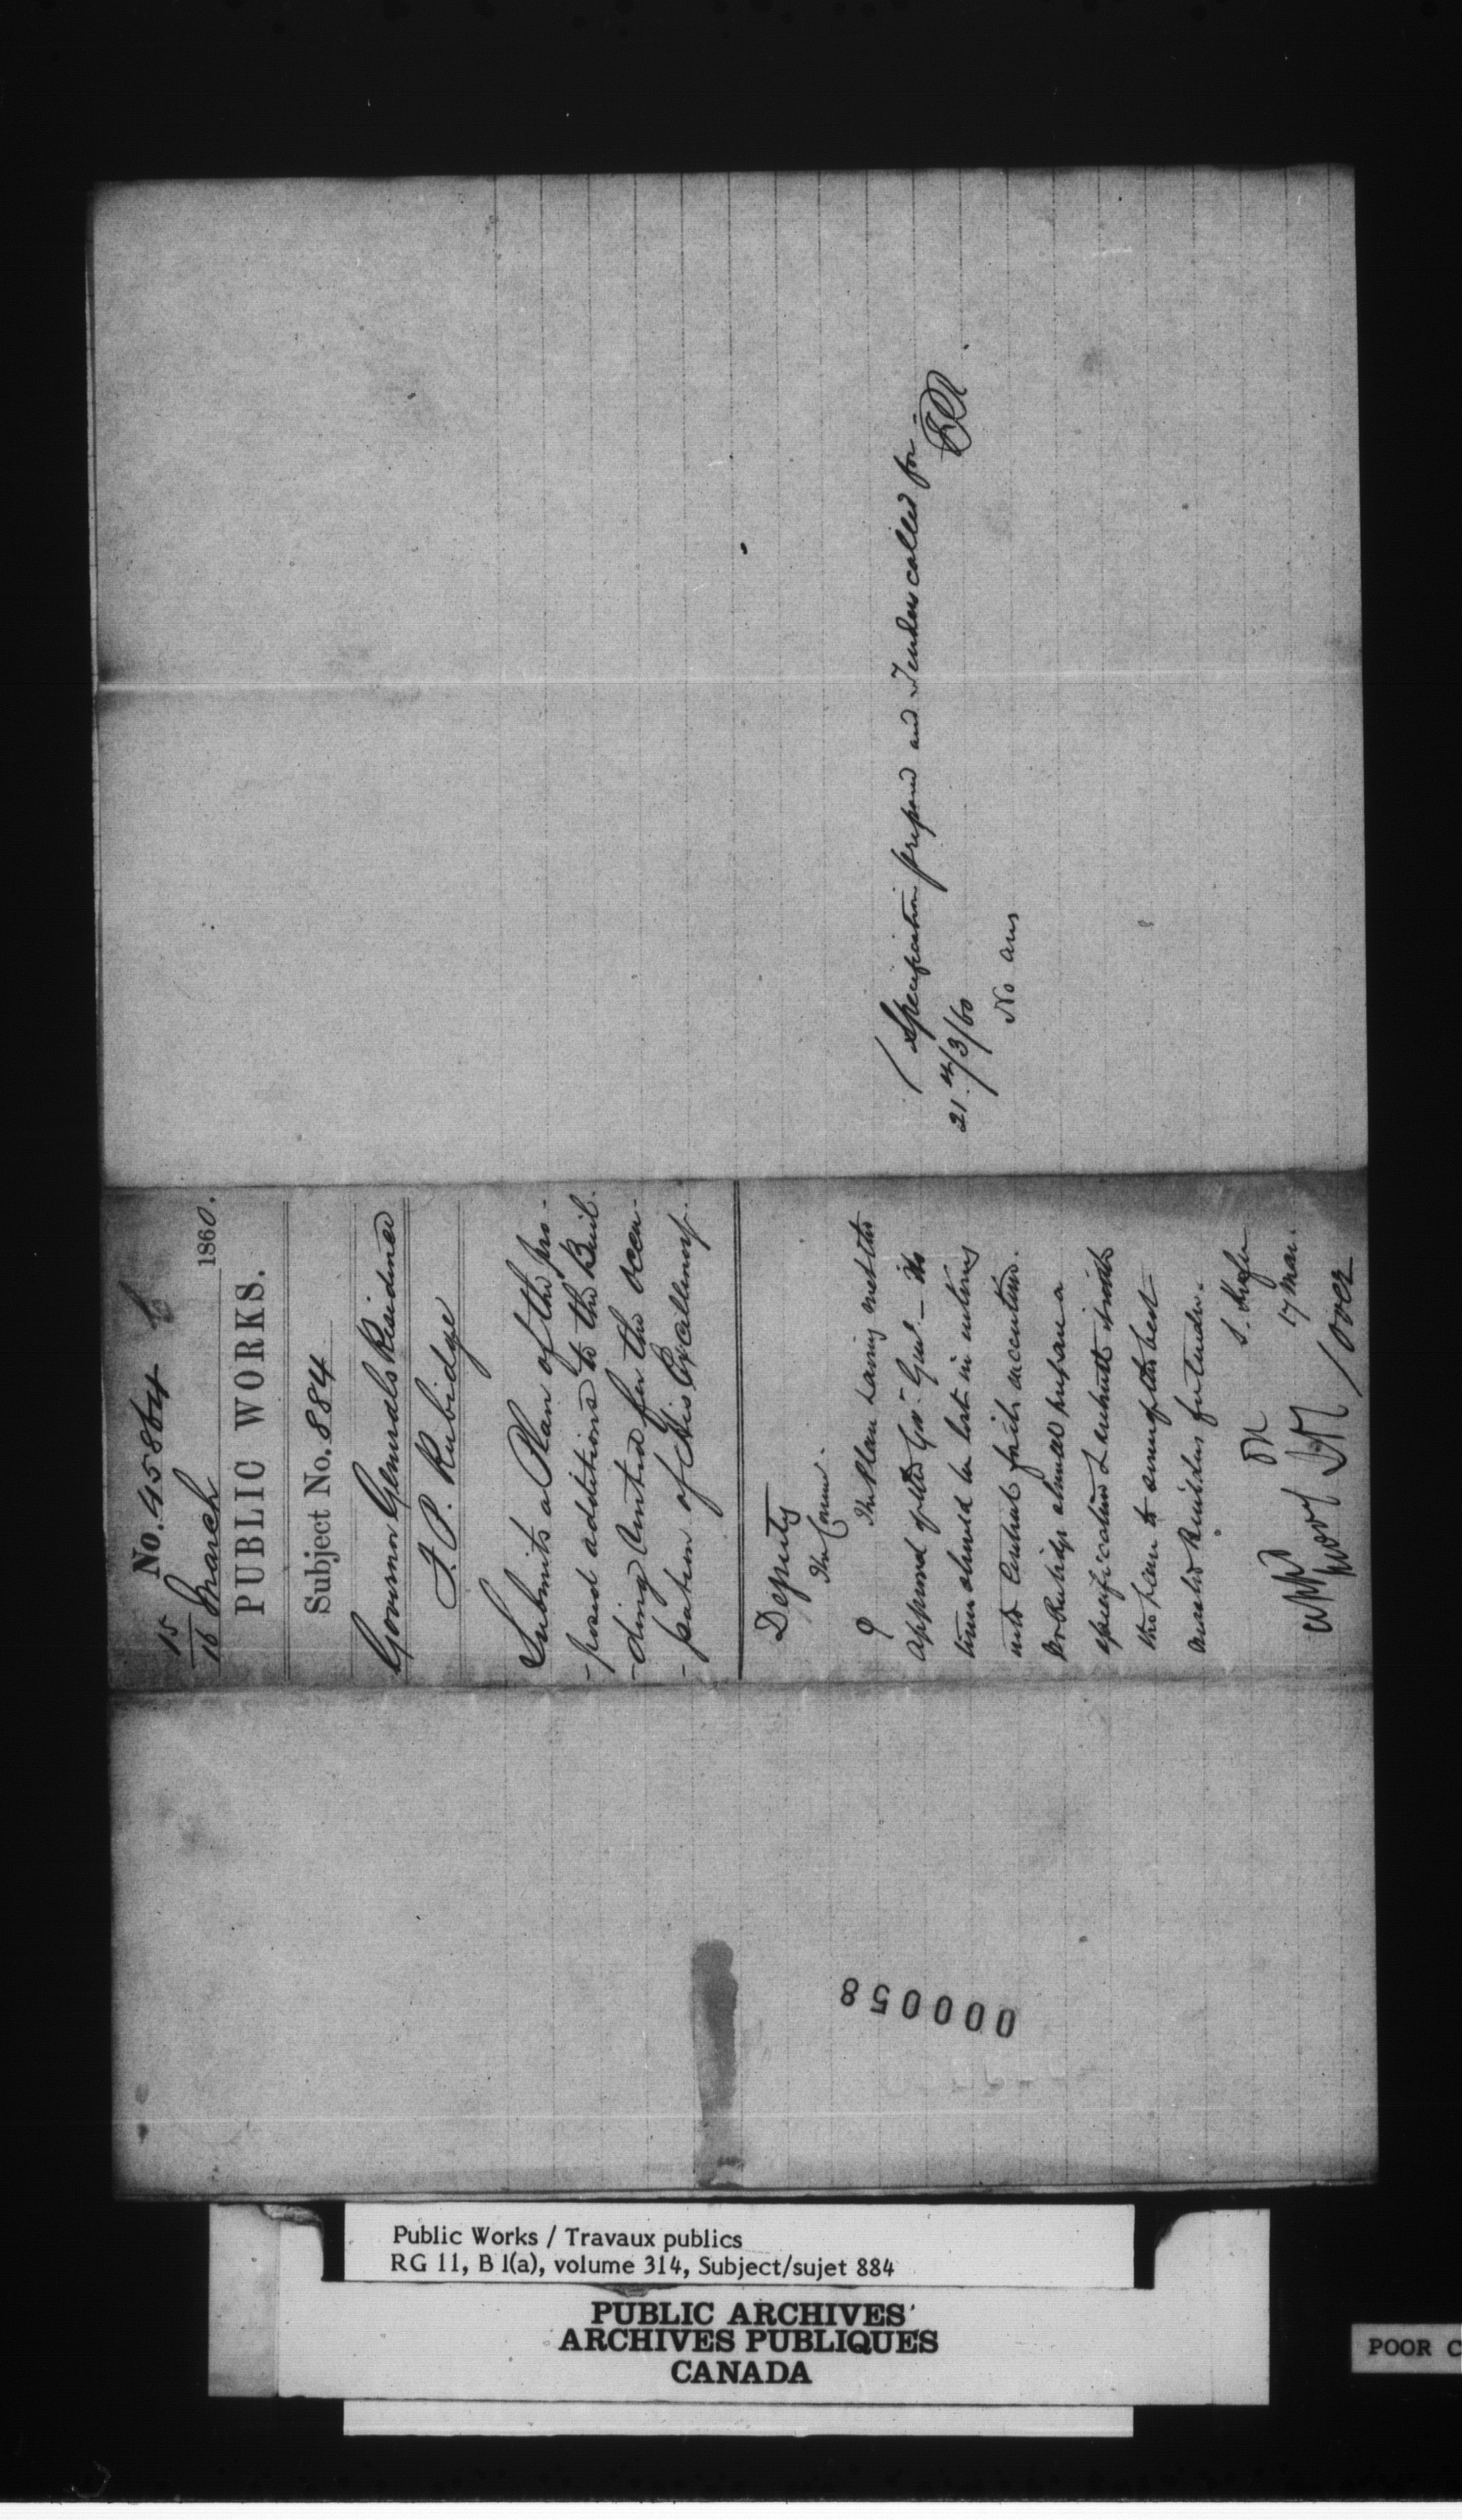 No. 45864
15
16 March 1860.
PUBLIC WORKS.
Subject No. 884
Governor Generals Residence
F. P. Rubidge
Submits a Plan of the pro-
-posed additions to the Buil-
-ding rented for the occu-
-pation of His Excellency.
Deputy
The Comr.
The Plan having met the
approval of the Govr. Genl - No
time should be lost in
into Contract for its execution.
Mr Rubidge should prepare a
specification & submit it with
the plan to some of the best
Builders for tender.
S. Keefer
17 Mar.
/over
Specification prepared and Tenders called for.
21st/3/60
FPR
No ans
000058
Public Works / Travaux publics
RG 11, B 1(a), volume 314, Subject/sujet 884
PUBLIC ARCHIVES
ARCHIVES PUBLIQUES
CANADA
POOR C